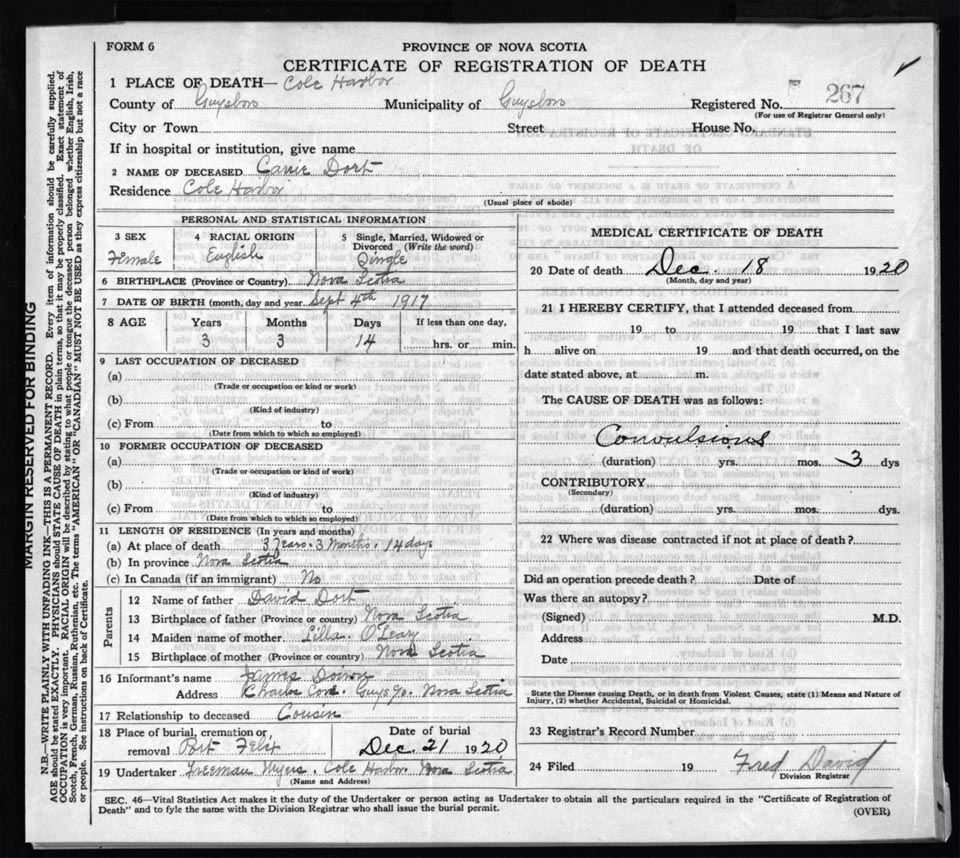 FORM 6
PROVINCE OF NOVA SCOTIA
CERTIFICATE OF REGISTRATION OF DEATH
1 PLACE OF DEATH— Cole Harbor
County of Guysboro Municipality of Guysboro Registered No. 267
(For use of Registrar General only)
City or Town Street House No.
If in hospital or institution, give name
2 NAME OF DECEASED Carrie Dort
Residence Cole Harbor
(Usual place of abode)
PERSONAL AND STATISTICAL INFORMATION
3 SEX 4 RACIAL ORIGIN 5 Single, Married, Widowed or Divorced (Write the word)
Female English Single
6 BIRTHPLACE (Province or Country) Nova Scotia
7 DATE OF BIRTH (month, day and year Sept 4th 1917
8 AGE Years Months Days If less than one day,
3 3 14 hrs. or min.
9 LAST OCCUPATION OF DECEASED
(a)
(Trade or occupation or kind or work)
(b)
(Kind of industry)
(c) From to
(Date from which to which so employed)
10 FORMER OCCUPATION OF DECEASED
(a)
(Trade or occupation or kind of work)
(b)
(Kind of industry)
(c) From to
(Date from which to which so employed)
11 LENGTH OF RESIDENCE (In years and months)
(a) At place of death 3 Years. 3 Months. 14 days
(b) In province Nova Scotia
(c) In Canada (if an immigrant) No
Parents
12 Name of father David Dort
13 Birthplace of father (Province or country) Nova Scotia
14 Maiden name of mother O'Leary
15 Birthplace of mother (Province or country) Nova Scotia
16 Informant's name James
Address Charlos Cove. Guys Co. Nova Scotia
17 Relationship to deceased Cousin
18 Place of burial, cremation or Date of burial
removal Port Felix Dec. 21 1920
19 Undertaker Freeman Myers. Cole Harbor Nova Scotia
(Name and Address)
MEDICAL CERTIFICATE OF DEATH
20 Date of death Dec. 18 1920
(Month, day and year)
21 I HEREBY CERTIFY, that I attended deceased from
19 to 19 that I last saw
h alive on 19 and that death occurred, on the
date stated above, at m.
The CAUSE OF DEATH was as follows:
Convulsions
(duration) yrs. mos. 3 dys
CONTRIBUTORY
(Secondary)
(duration) yrs. mos. dys.
22 Where was disease contracted if not at place of death?
Did an operation precede death? Date of
Was there an autopsy?
(Signed) M.D.
Address
Date
State the Disease causing Death, or in death from Violent Causes, state (1) Means and Nature of
Injury, (2) whether Accidental, Suicidal or Homicidal.
23 Registrar's Record Number
24 Filed 19 Fred David
Division Registrar
SEC. 46—Vital Statistics Act makes it the duty of the Undertaker or person acting as Undertaker to obtain all the particulars required in the "Certificate of Registration of
Death" and to fyle the same with the Division Registrar who shall issue the burial permit.
(OVER)
MARGIN RESERVED FOR BINDING
N.B.—WRITE PLAINLY WITH UNFADING INK—THIS IS A PERMANENT RECORD. Every item of information should be carefully supplied.
AGE should be stated EXACTLY. PHYSICIANS should STATE CAUSE OF DEATH in plain terms, so that it may be properly classified. Exact statement of
OCCUPATION is very important. RACIAL ORIGIN will be described by stating to what people or tongue the deceased person belonged whether English, Irish,
Scotch, French, German, Russian, Ruthenian, etc. The terms "AMERICAN" OR "CANADIAN" MUST NOT BE USED as they express citizenship but not a race
or people. See instructions on back of Certificate.